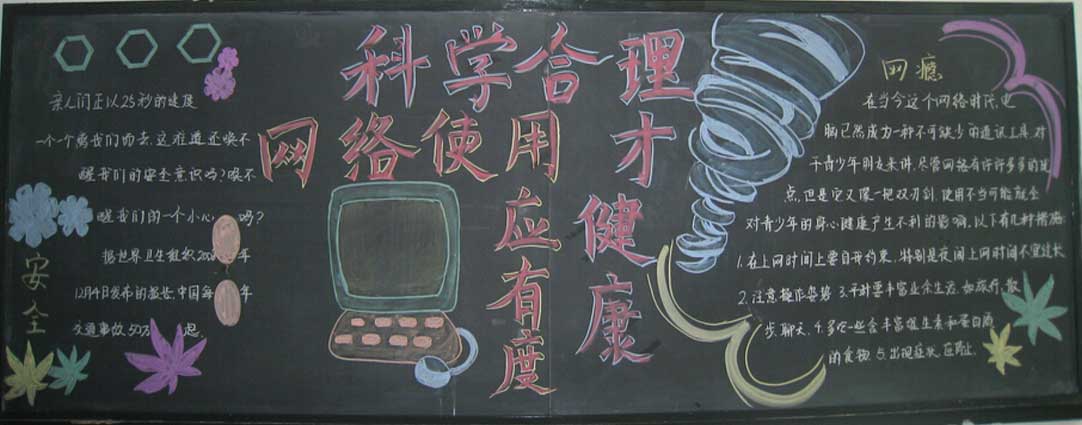 科学合理
网络使用才健康
应有度
亲人们正以25秒的速度
一个个离我们而去,这难道还唤不
醒我们的安全意识吗?唤不
醒我们的一个小心 吗?
据世界卫生组织200 年
12月4日发布的报告,中国每 年
交通事故50万 起
安全
网瘾
在当今这个网络时代,电
脑已然成为一种不可缺少的通讯工具,对
于青少年朋友来讲,尽管网络有许许多多的优
点,但是它又像一把双刃剑,使用不当可能就会
对青少年的身心健康产生不利的影响,以下有几种措施
1.在上网时间上要自我约束,特别是夜间上网时间不宜过长
2.注意操作姿势 3.平时要丰富业余生活,如旅行,散
步,聊天. 4.多吃一些含丰富维生素和蛋白质
的食物. 5.出现症状,应停止.